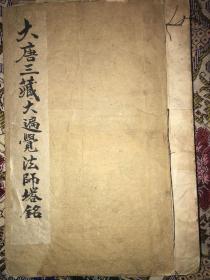 大唐三藏大遍覺法師塔銘